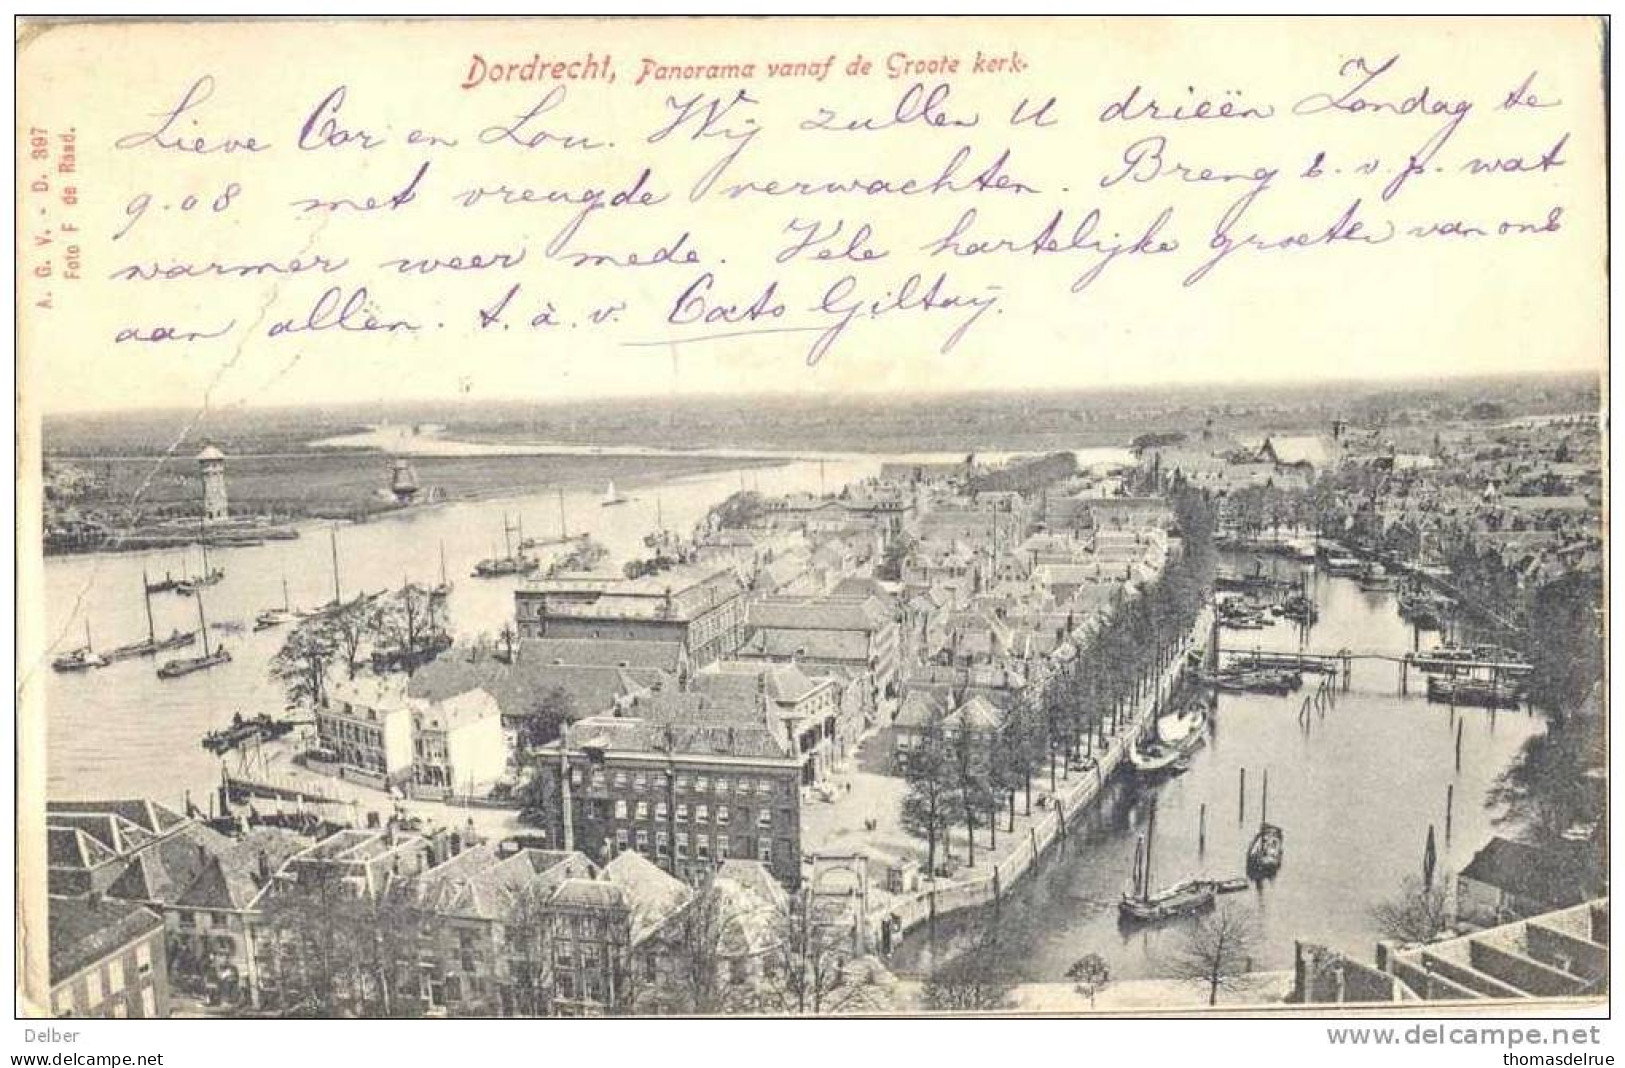 Dordrecht, Panorama vanaf de Groote kerk.
A. G. V. - D. 397
Foto F de Raad.
Lieve Cor en Lou. Wij zullen U drieën Zondag te
9.08 met vreugde verwachten. Breng s.v.p. wat
warmer weer mede. Vele hartelijke groeten van ons
aan allen. t. à. v. Cato Giltay.
Delber
www.delcampe.net
www.delcampe.net
thomasdelrue